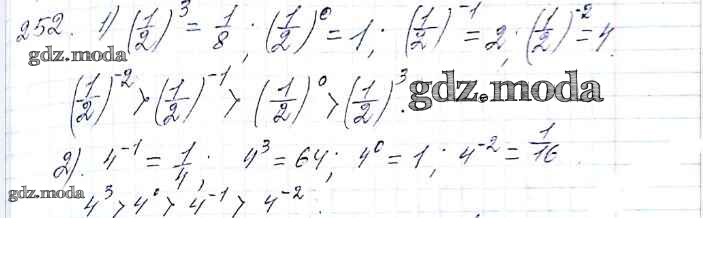 252. 1) (1/2)^3 = 1/8; (1/2)^0 = 1; (1/2)^-1 = 2; (1/2)^-2 = 4.
gdz.moda
(1/2)^-2 > (1/2)^-1 > (1/2)^0 > (1/2)^3.
gdz.moda
2). 4^-1 = 1/4; 4^3 = 64; 4^0 = 1; 4^-2 = 1/16.
gdz.moda
4^3 > 4^0 > 4^-1 > 4^-2.